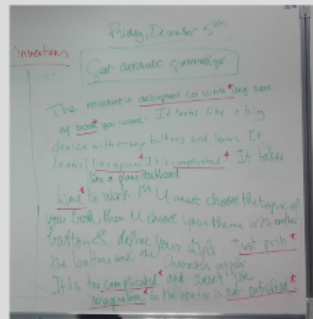 Friday, December 5th
Inventions
automatic
The machine is designed to write any sort
of book you want. It looks like a big
device with many buttons and levers. It
looks like a plane. It's complicated. It takes
like a plane dashboard
time to work. 1st U must choose the type of
your book, then U choose your theme with another
button & define your style. Just push
the buttons and the characters appear
It is too complicated and doesn't use
imagination so the writer is not satisfied.